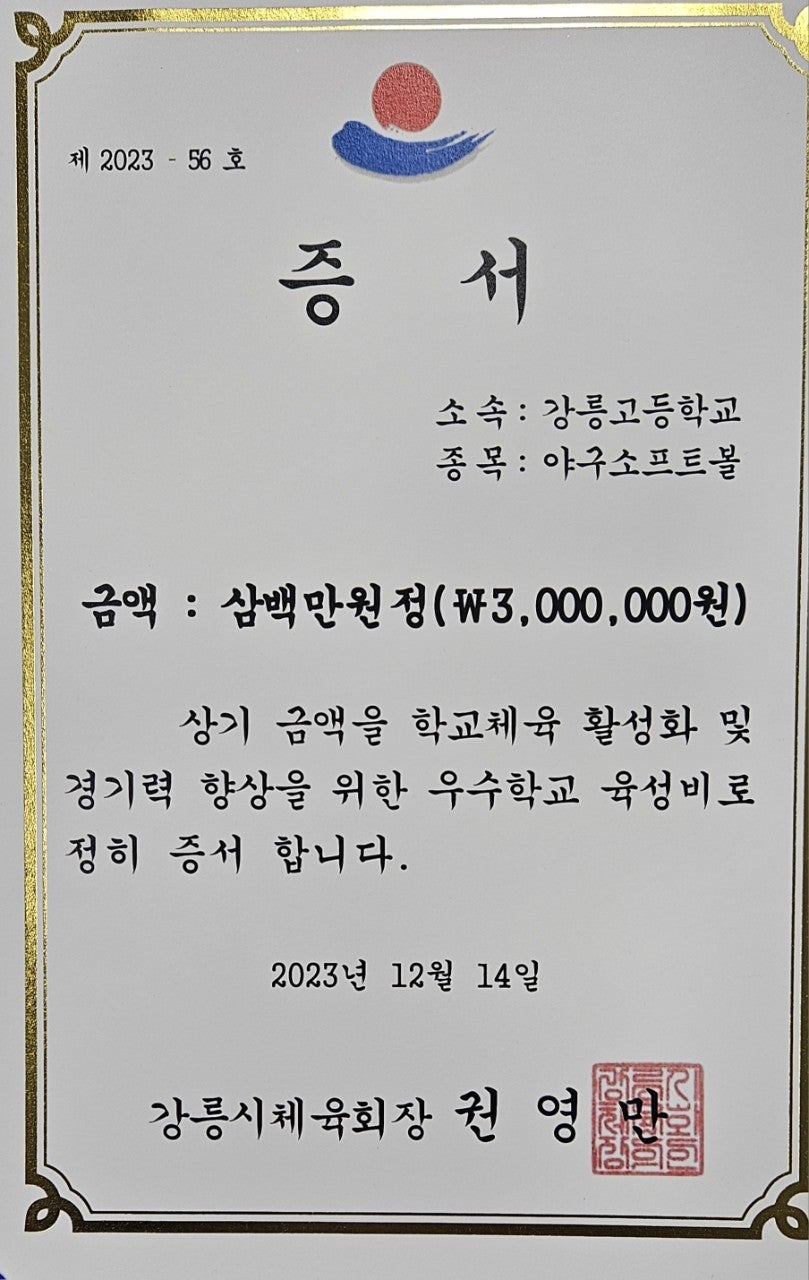 제 2023 - 56 호
증 서
소 속 : 강릉고등학교
종 목 : 야구소프트볼
금액 : 삼백만원정(₩3,000,000원)
상기 금액을 학교체육 활성화 및
경기력 향상을 위한 우수학교 육성비로
정히 증서 합니다.
2023년 12월 14일
강릉시체육회장 권 영 만